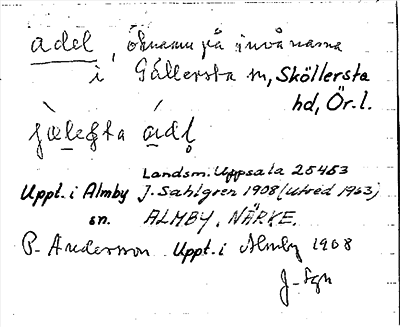 adel, öknamn på invånarna
i Gällersta sn, Sköllersta
hd, Ör. l.
jælesta ádḷ
Landsm. Uppsala 25453
Uppt. i Almby J. Sahlgren 1908 (utred 1963)
sn. ALMBY, NÄRKE.
P. Andersson Uppt. i Almby 1908
J. Sgn